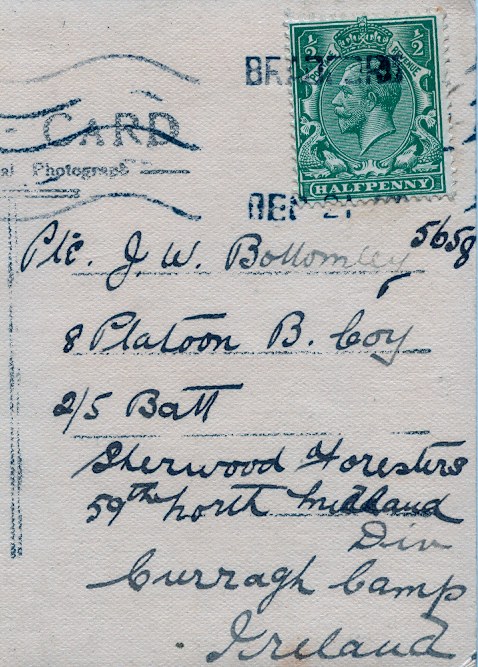 ½ ½
POSTAGE REVENUE
HALFPENNY
CARD
al Photograph
Pte. J. W. Bottomley 5658
8 Platoon B. Coy
2/5 Batt
Sherwood Foresters
59th North Midland
Div
Curragh Camp
Ireland.